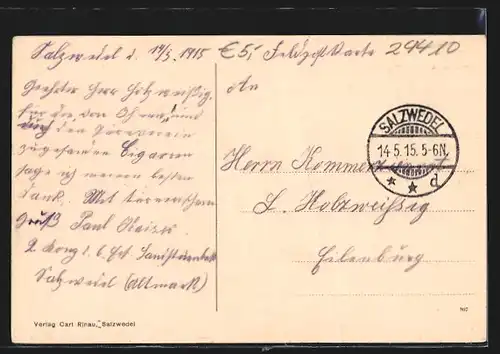 Salzwedel d. 14/5. 1915
€5,- Feldpostkarte 29410
An
Geehrter Herr Holzweißig.
Für die von Ihnen uns
durch den
zugesandten Cigarren
sage ich meinen besten
Dank. Mit
Gruß Paul Kaiser
2. Komp.
Salzwedel (Altmark)
SALZWEDEL
14.5.15. 5-6N.
* * d
Herrn Kommerzienrat
L. Holzweissig
Eilenburg
Verlag Carl Rinau, Salzwedel